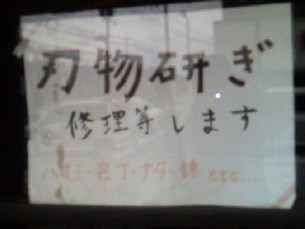 刃物研ぎ
修理等します
ハサミ・包丁・ナタ・鎌・etc...